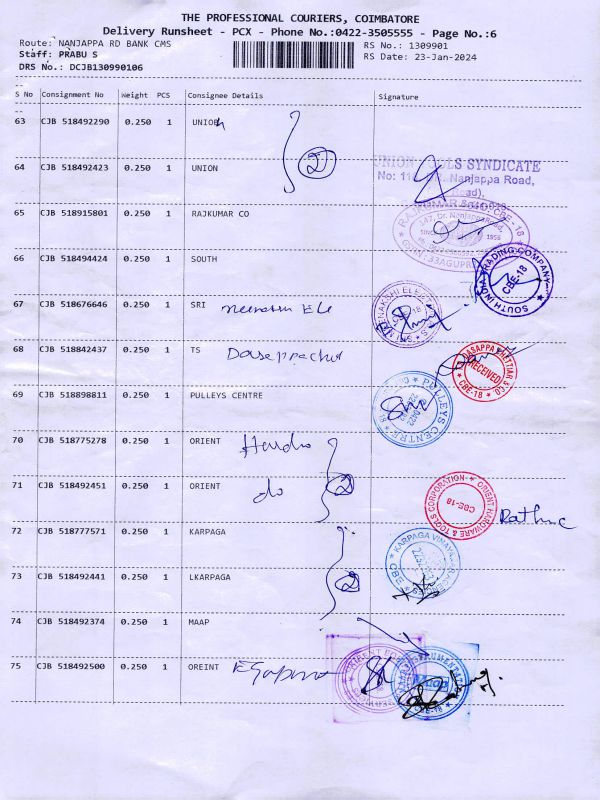 THE PROFESSIONAL COURIERS, COIMBATORE
Delivery Runsheet - PCX - Phone No.:0422-3505555 - Page No.:6
Route: NANJAPPA RD BANK CMS RS No.: 1309901
Staff: PRABU S RS Date: 23-Jan-2024
DRS No.: DCJB130990106
S No Consignment No Weight PCS Consignee Details Signature
63 CJB 518492290 0.250 1 UNION
64 CJB 518492423 0.250 1 UNION 2
UNION TOOLS SYNDICATE
Nanjappa Road,
65 CJB 518915801 0.250 1 RAJKUMAR CO
RAJKUMAR & CO CBE-18
147, Dr. Nanjappa Road,
66 CJB 518494424 0.250 1 SOUTH
SOUTH INDIA TRADING COMPANY CBE-18
67 CJB 518676646 0.250 1 SRI Meenakshi Ele
68 CJB 518842437 0.250 1 TS Dasappachet
DASAPPA CHETTIAR & CO RECEIVED CBE-18
69 CJB 518898811 0.250 1 PULLEYS CENTRE
PULLEYS CENTRE
70 CJB 518775278 0.250 1 ORIENT Hardw
71 CJB 518492451 0.250 1 ORIENT do 2
ORIENT HARDWARE & TOOLS CORPORATION CBE-18
72 CJB 518777571 0.250 1 KARPAGA
KARPAGA VINAYA
73 CJB 518492441 0.250 1 LKARPAGA 2
74 CJB 518492374 0.250 1 MAAP
75 CJB 518492500 0.250 1 OREINT